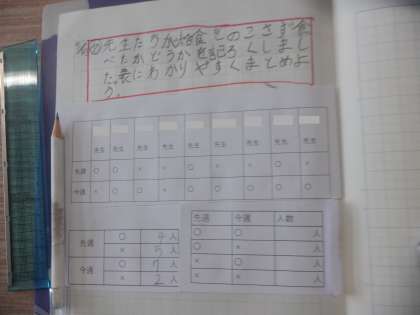 先生たちが給食をのこさず食
べたかどうかを記ろくしまし
た。表にわかりやすくまとめよ
う。
先生 先生 先生 先生 先生 先生 先生 先生 先生
先週
今週
先週 ○ 4人
× 5人
今週 ○ 7人
× 2人
先週 今週 人数
○ ○ 人
○ × 人
× ○ 人
× × 人